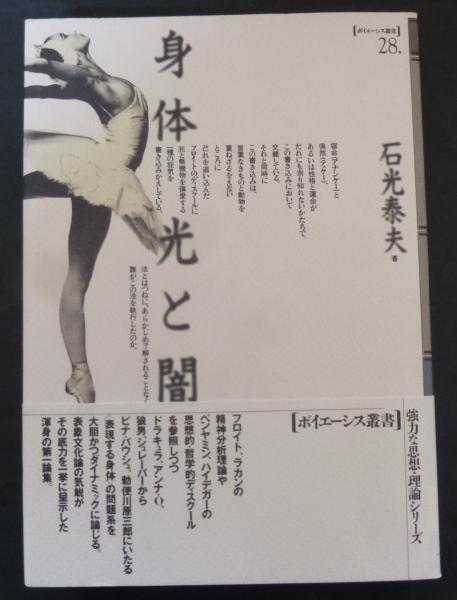 【ポイエーシス叢書】
28.
身体 光と闇
石光泰夫 著
宿命(アナンケー)と
偶然(テュケー)、
あるいは性格と運命が
だれにも測り知れないかたちで、
この書き込みにおいて
交錯している。
それと同時に
この書き込みは、
言葉なきものと動物を
重ねざるをえない
ところに
己れを追い込んだ
フロイトのディスクールに
死と無機物を偏愛する
一種の狂気を
書き込みかえしている。
法とはつねに、あらかじめ了解されることなく
誰がこの法を執行したのか。
強力な思想・理論シリーズ
【ポイエーシス叢書】
フロイト、ラカンの
精神分析理論や
ベンヤミン、ハイデガーの
思想的・哲学的ディスクール
を参照しつつ
ドラキュラ、アンナ・O、
狼男、シュレーバーから
ピナ・バウシュ、勅使川原三郎にいたる
〈表現する身体〉の問題系を
大胆かつダイナミックに論じる。
表象文化論の気鋭が
その底力を一挙に呈示した
渾身の第一論集。